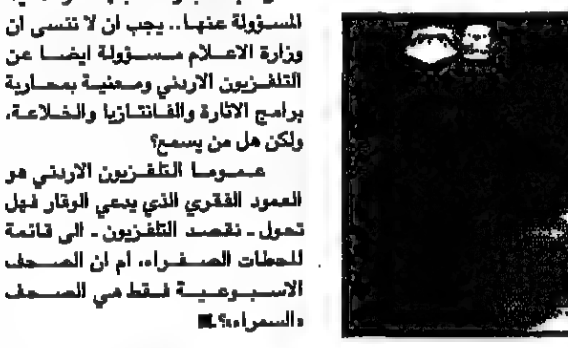 المسؤولة عنها.. يجب ان لا تنسى ان
وزارة الاعلام مسؤولة ايضا عن
التلفزيون الاردني ومعنية بمحاربة
برامج الاثارة والفانتازيا والخلاعة،
ولكن هل من يسمع؟
عموما التلفزيون الاردني هو
العمود الفقري الذي يدعي الوقار فهل
تحول ـ نقصد التلفزيون ـ الى قائمة
المحطات الصفراء، ام ان الصحف
الاسبوعية فقط هي الصحف
«السمراء»؟